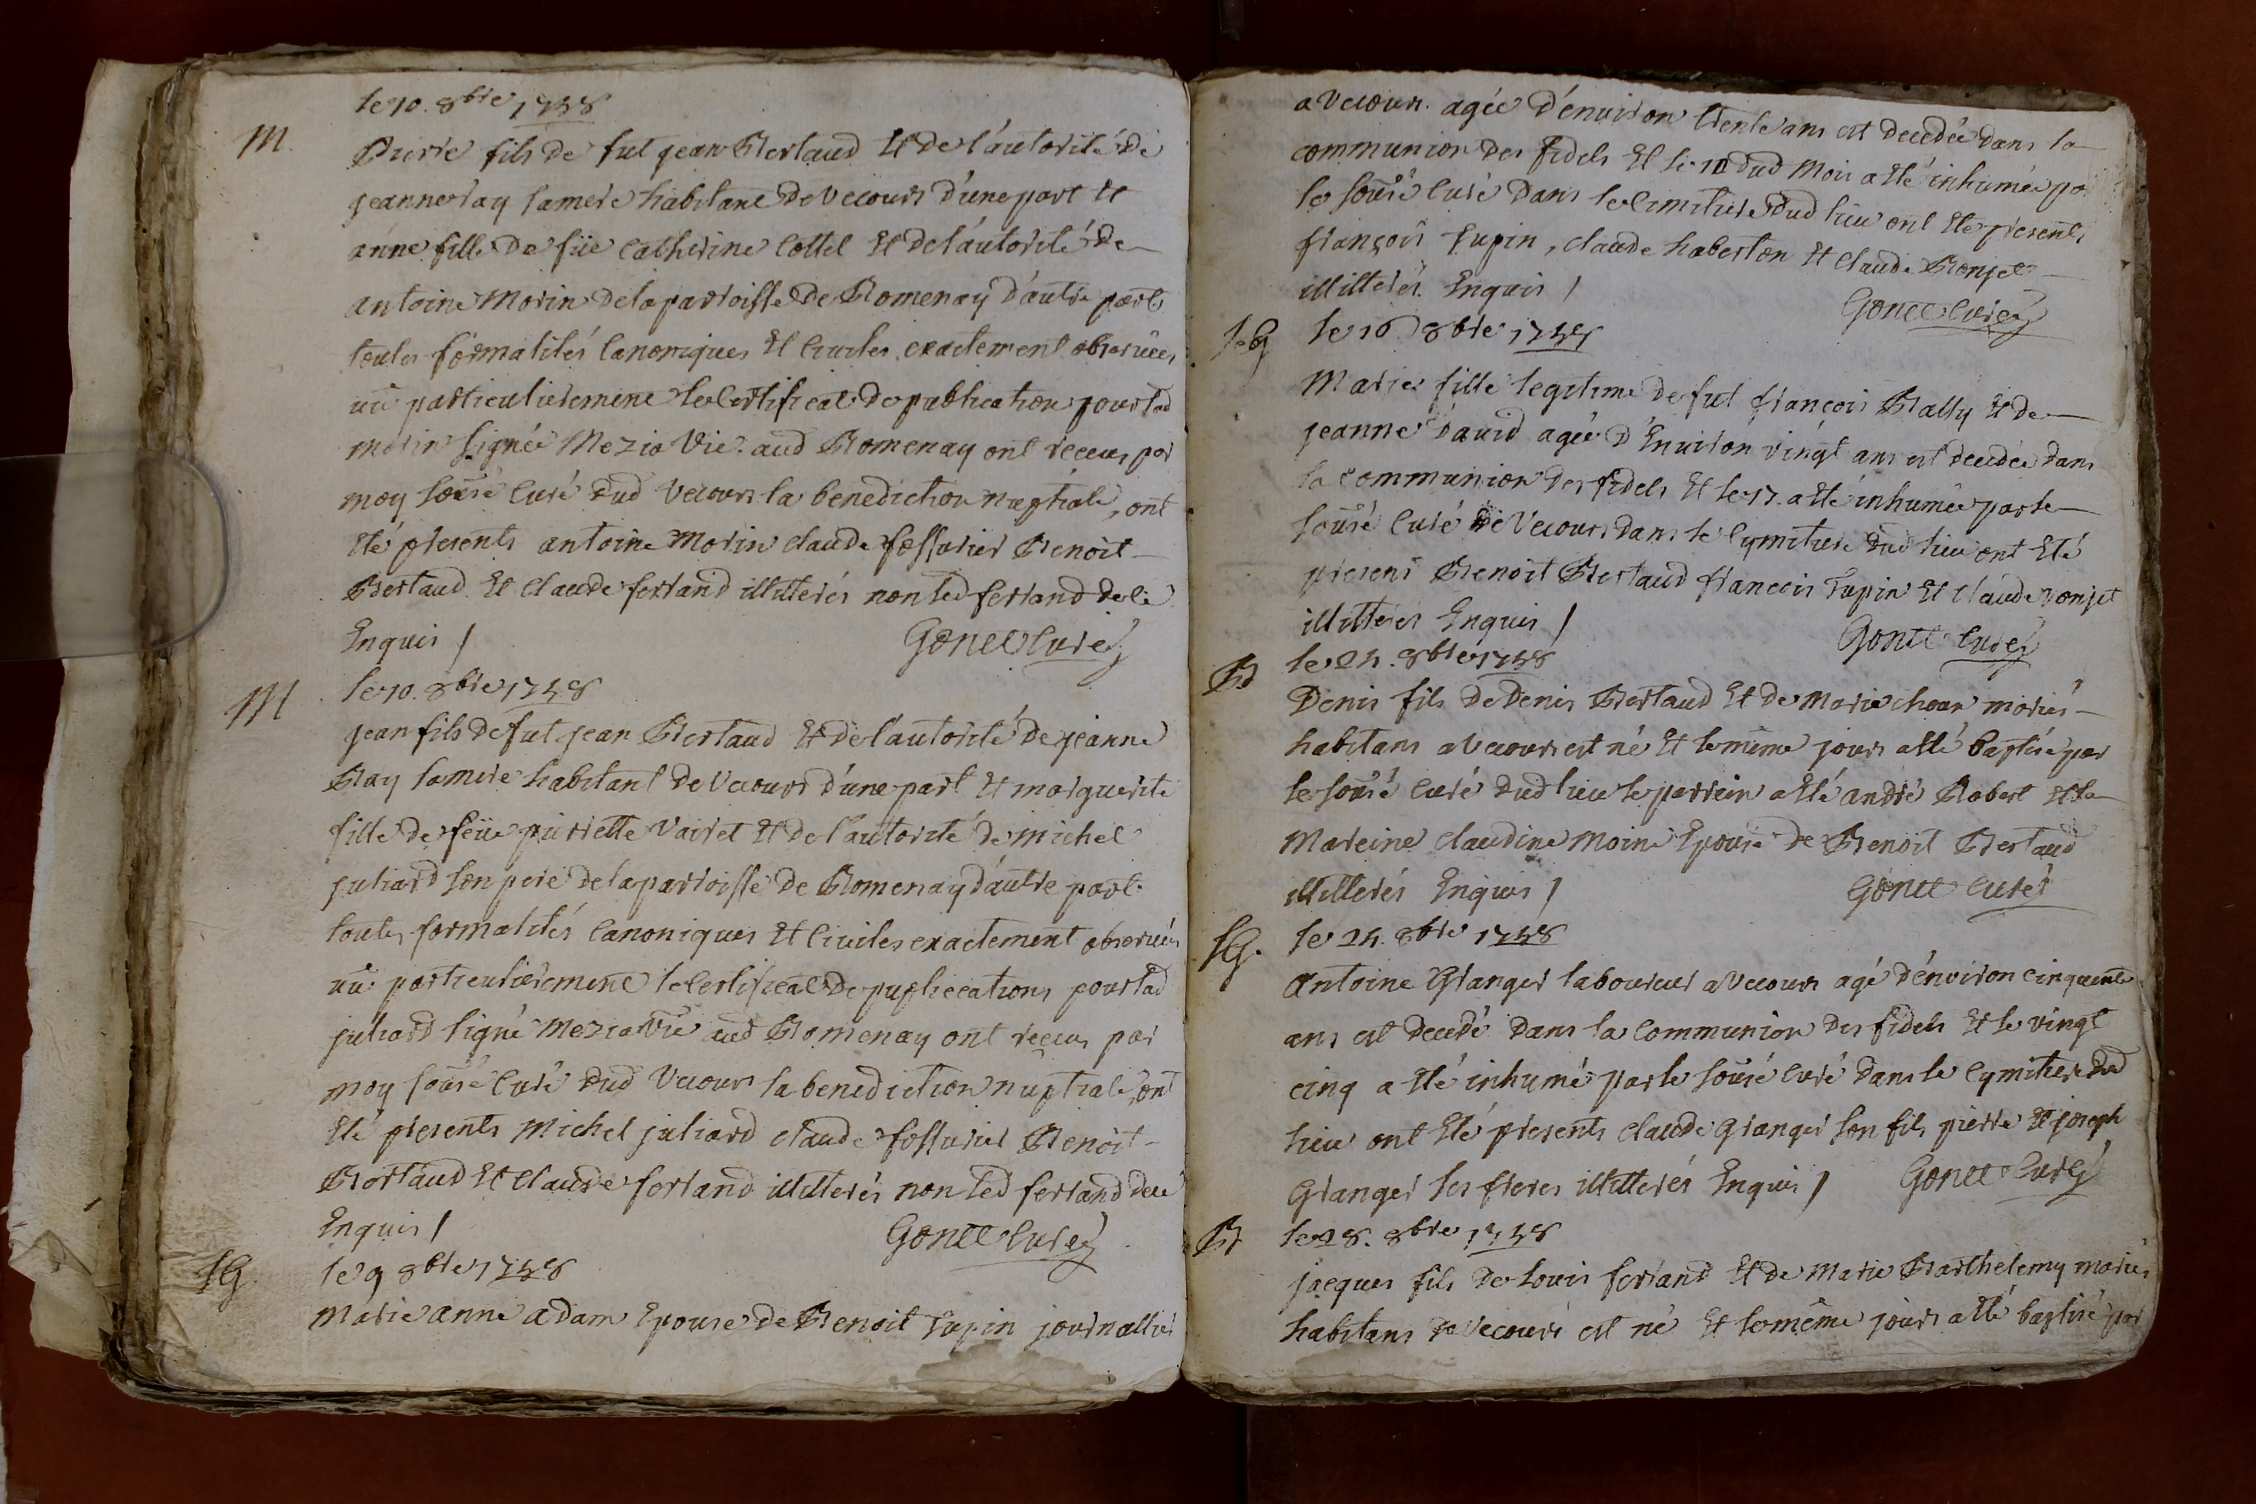 le 10. 8bre 1758
M.
Pierre fils de fut jean Bertaud Et de l'autorité de
jeanne ray samere habitant de Vecours d'une part et
anne fille de füe Catherine Cottel Et de l'autorité de
antoine Morin de la parroisse de Romenay d'autre part
toutes formalités Canoniques Et Civiles exactement observées
vû particulierement le Certificat de publication pour lad
morin signée Mezia Vic. aud Romenay ont receus par
moy sousé Curé dud Vecours la benediction nuptiale, ont
Eté presents antoine Morin claude fossurier Benoit
Bertaud Et Claude ferland illiterés non led ferland de ce
Enquis /
Gonet Curé
M
le 10. 8bre 1758
jean fils de fut jean Bertaud Et de l'autorité de jeanne
Ray samere habitant de Vecours d'une part Et marguerite
fille de feüe pierrette Vairet Et de l'autorité de michel
juliard son pere de la parroisse de Romenay d'autre part
toutes formalités Canoniques Et Civiles exactement observées
vû particulierement le Certificat de puplications pour lad
juliard signé Mezia Vic aud Romenay ont reçeus par
moy sousé Curé dud Vecours la benediction nuptiale, ont
Eté presents Michel juliard claude fossurier Benoit
Bertaud Et Claude ferland illiterés non led ferland de ce
Enquis /
Gonet Curé
SG.
le 9 8bre 1758
Marie anne adam Epouse de Benoit Tupin journallier
a Vecours. agée d'environ trente ans est decedée dans la
communion des fidels Et le 10 dud Mois a Eté inhumée par
le sousé Curé dans le Cimitiere dud lieu ont Eté presents
françois Tupin, claude haberton Et Claude Ronjet
illiterés. Enquis /
Gonet Curé
SG
le 16 8bre 1758
Marie fille legitime de fut françois Bally Et de
jeanne David agée d'Environ vingt ans est decedée dans
la communion des fidels Et le 17. a Eté inhumée par le
sousé Curé de Vecours dans le Cymitiere dud lieu ont Eté
present Benoit Bertaud francois Tupin Et Claude ronjet
illiterés Enquis /
Gonet Curé
B
le 24. 8bre 1758
Denis fils de Denis Bertaud Et de Marie chour mariés
habitans a Vecours est né Et le même jours a Eté Baptisé par
le sousé Curé dud lieu le parrein a Eté andré Robert Et la
Mareine Claudine Moine Epouse de Benoit Bertaud
illiterés Enquis /
Gonet Curé
SG.
le 24. 8bre 1758
Antoine Granger laboureur a Vecours agé d'environ cinquente
ans est decedé dans la Communion des fidels Et le vingt
cinq a Eté inhumé par le sousé Curé dans le Cymitiere dud
lieu ont Eté presents Claude Granger son fils pierre Et joseph
Granger ses freres illiterés Enquis /
Gonet Curé
B
le 28. 8bre 1758
jacques fils de Louis ferland Et de Marie Barthelemy mariés
habitans a Vecours est né Et le même jours a Eté baptisé par